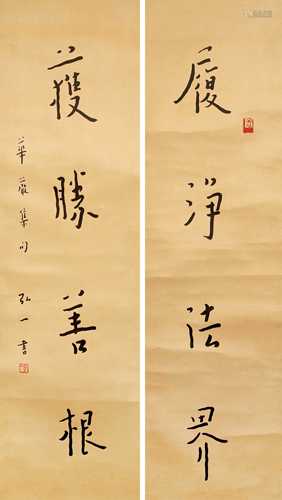 履淨法界
獲勝善根
華嚴集句
弘一書